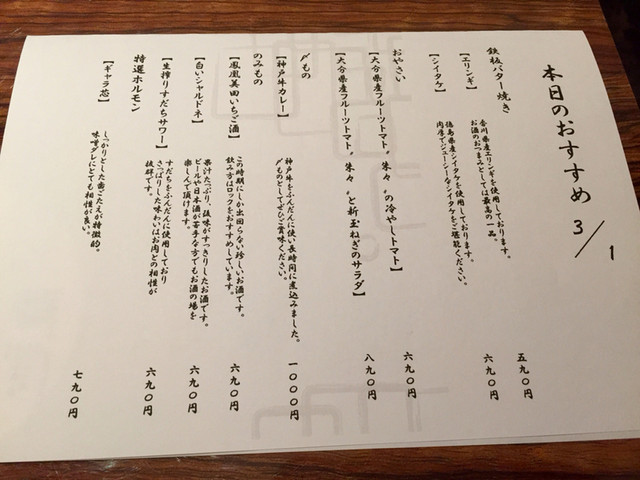 本日のおすすめ 3/1
鉄板バター焼き
【エリンギ】
香川県産エリンギを使用しております。
お酒のおつまみとしては最高の一品。
五九〇円
【シイタケ】
徳島県産シイタケを使用しております。
肉厚でジューシーなシイタケをご堪能ください。
六九〇円
おやさい
【大分県産フルーツトマト〝朱々〟の冷やしトマト】
六九〇円
【大分県産フルーツトマト〝朱々〟と新玉ねぎのサラダ】
八九〇円
〆もの
【神戸牛カレー】
神戸牛をふんだんに使い長時間に煮込みました。
〆ものとしてぜひご賞味ください。
一〇〇〇円
のみもの
【鳳凰美田いちご酒】
この時期にしか出回らない珍しいお酒です。
飲み方はロックをおすすめしています。
六九〇円
【白いシャルドネ】
果汁たっぷり、酸味がすっきりしたお酒です。
ビールや日本酒が苦手な方でもお酒の場を
楽しんで頂けます。
六九〇円
【生搾りすだちサワー】
すだちをふんだんに使用しており
さっぱりした味わいはお肉との相性が
抜群です。
六九〇円
特選ホルモン
【ギャラ芯】
しっかりとした歯ごたえが特徴的。
味噌ダレにとても相性が良い。
七九〇円